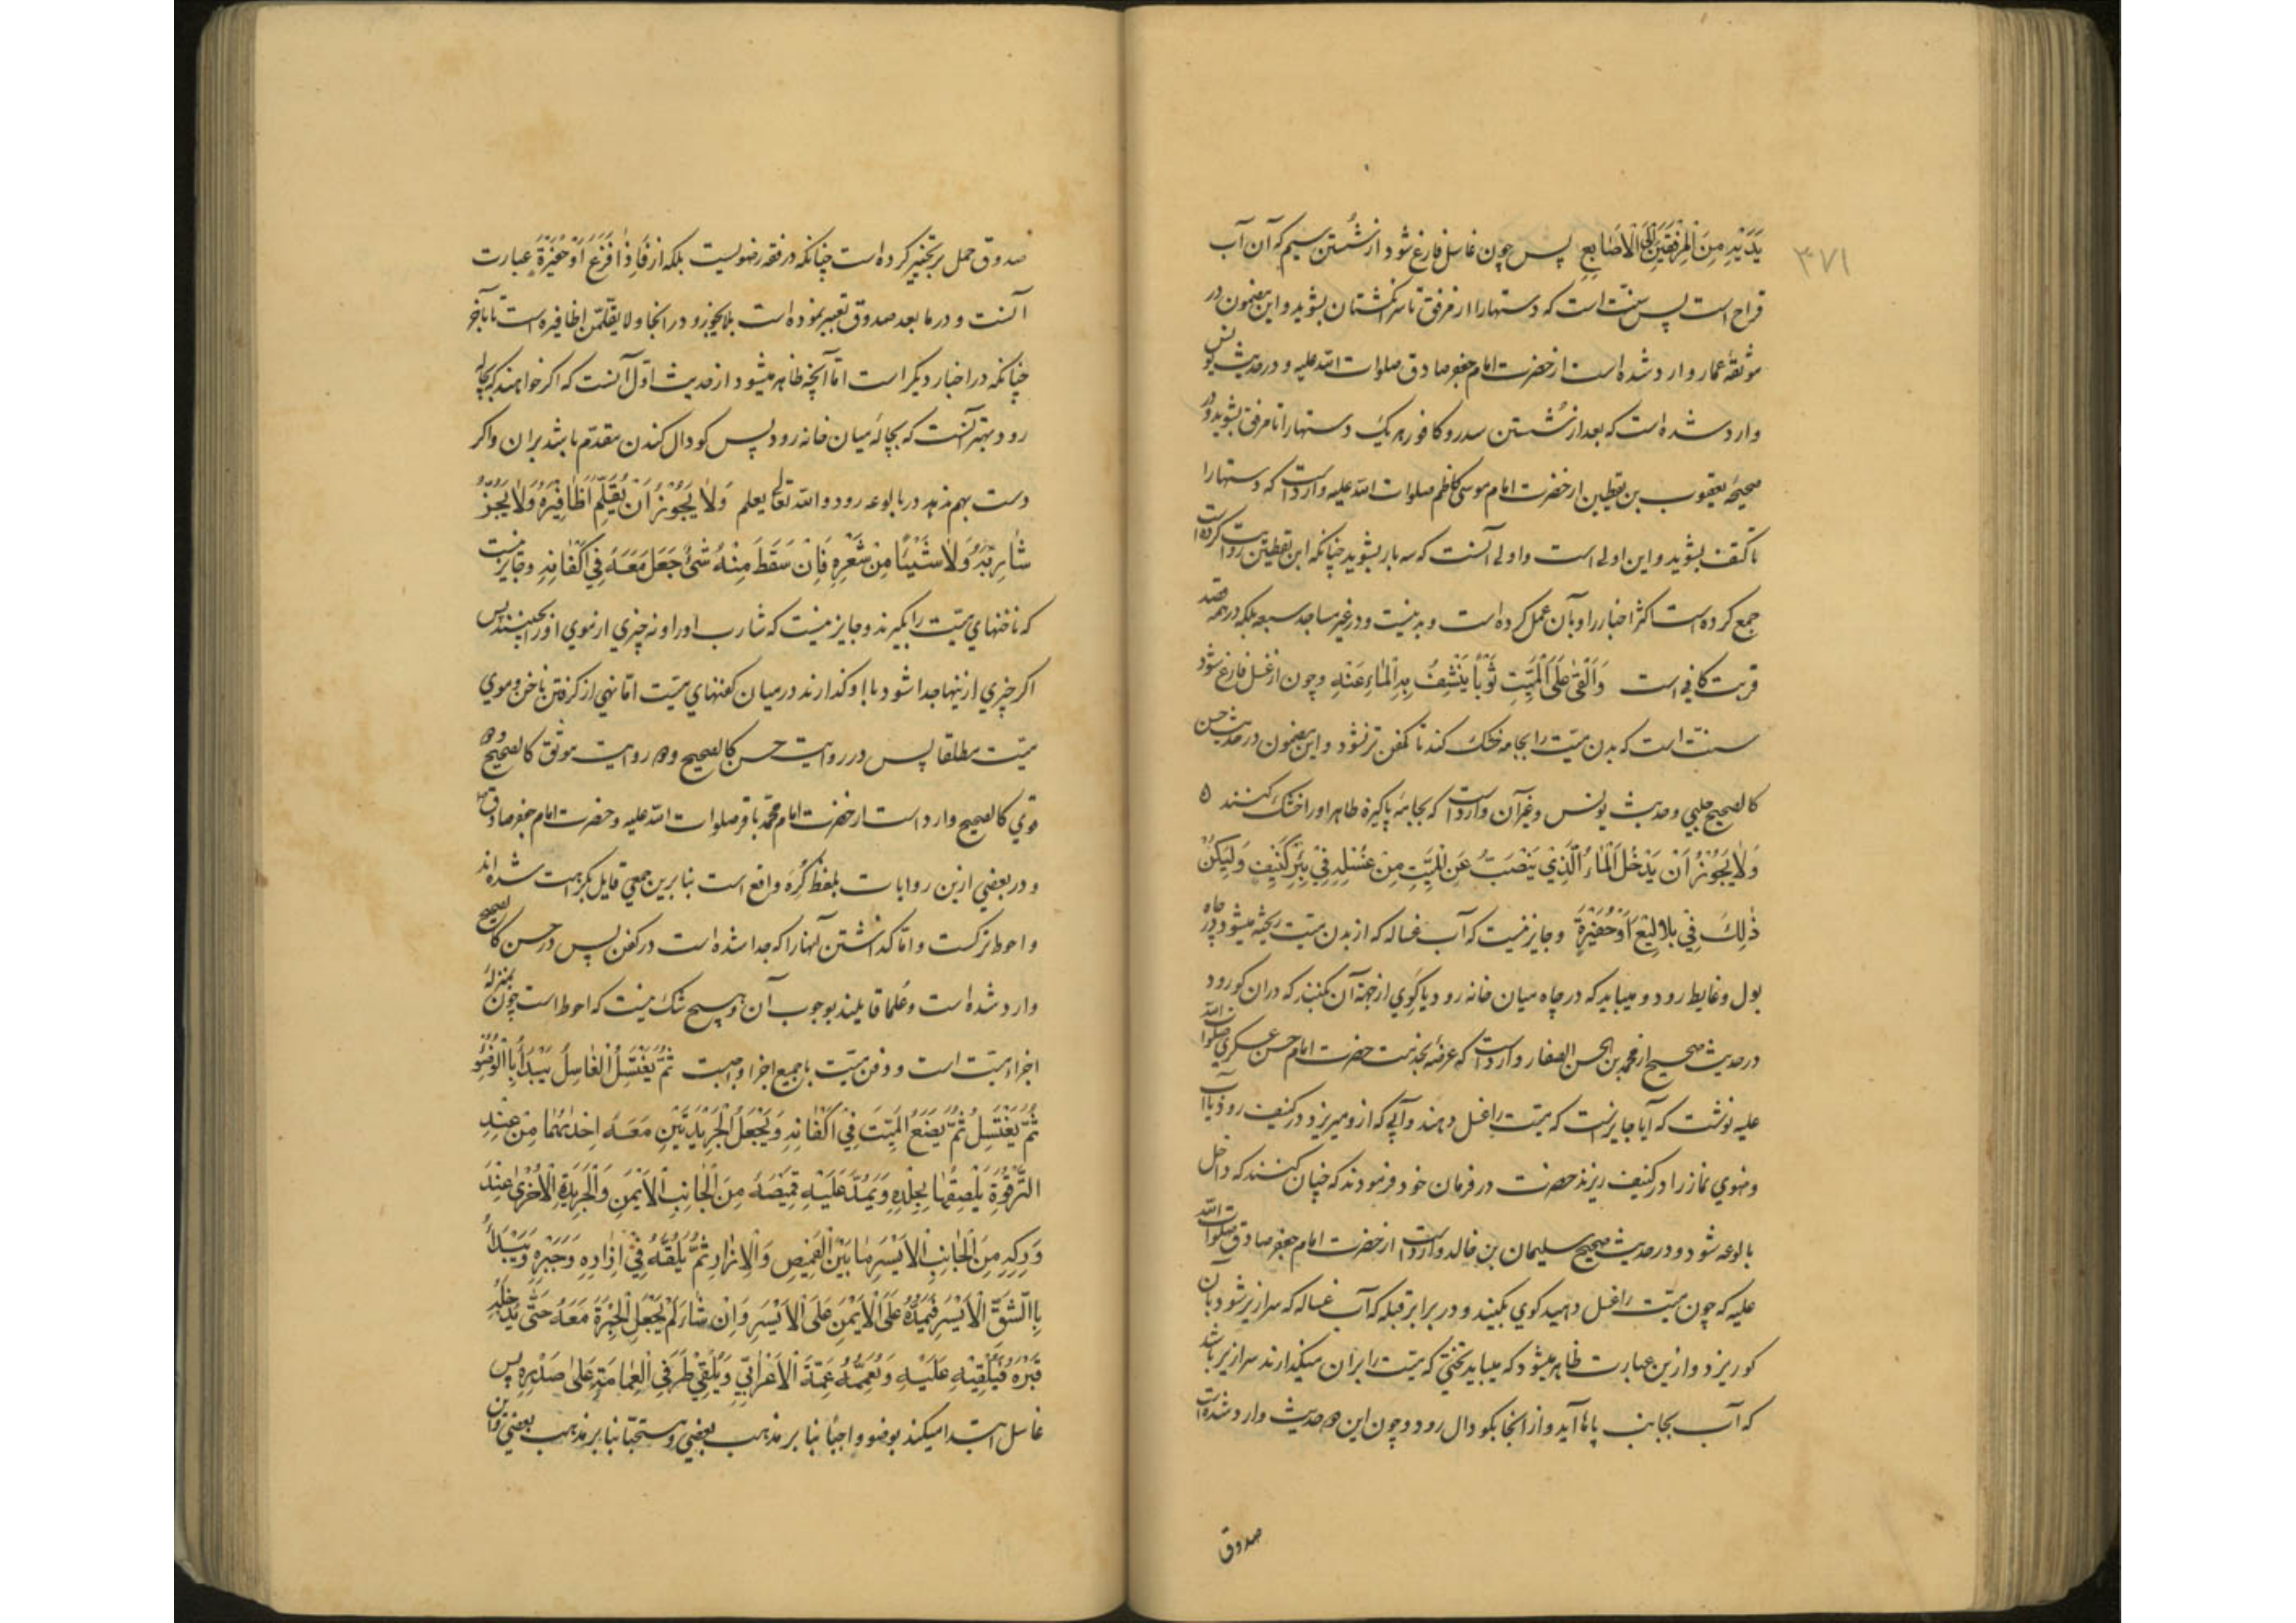 ۳۷۱
یَدَیْهِ مِنَ الْمِرْفَقَیْنِ اِلَی الْاَصَابِعِ پس چون غاسل فارغ شود از شُستن سیم که آن آب
قراح است پس سنّت است که دستها را از مرفق تا سر انگشتان بشوید و این مضمون در
موثقهٔ عمار وارد شده است از حضرت امام جعفر صادق صلوات الله علیه و در حدیث یونس
وارد شده است که بعد از شُستن سدر و کافور هر یک دستها را تا مرفق بشوید و در
صحیحهٔ یعقوب بن یقطین از حضرت امام موسی کاظم صلوات الله علیه وارد است که دستها را
تا کتف بشوید و این اولی است و اولی آنست که سه بار بشوید چنانکه ابن یقطین روایت کرده است
جمع کرده است اکثر اخبار را و بآن عمل کرده است و بد نیست و در غیر مساجد سبعه بلکه در همه قصد
قربت کافی است وَاَلْقیٰ عَلَی الْمَیِّتِ ثَوْبًا یَنْشِفُ بِهِ الْمَاءَ عَنْهُ و چون از غسل فارغ شود
سنّت است که بدن میّت را بجامه خشک کند تا کفن تر نشود و این مضمون در حدیث حسن
کالصحیح حلبی و حدیث یونس و غیر آن وارد است که بجامهٔ پاکیزه طاهر او را خشک کنند ه
وَلَا یَجُوْزُ اَنْ یَدْخُلَ الْمَاءُ الَّذِیْ یَنْصَبُّ عَنِ الْمَیِّتِ مِنْ غُسْلِهِ فِیْ بِئْرِ کَنِیْفٍ وَلْیَکُنْ
ذٰلِکَ فِیْ بَلَالِیْعَ اَوْ حَفِیْرَةٍ و جایز نیست که آب غساله که از بدن میّت ریخته میشود در چاه
بول و غایط رود و میباید که در چاه میان خانه رود یا گَوی از جهة آن بکنند که در ان گو رود
در حدیث صحیح از محمد بن الحسن الصفار وارد است که عرضه بخدمت حضرت امام حسن عسکری صلوات الله
علیه نوشت که آیا جایز است که میّت را غسل دهند و آبی که از و میریزد در کنیف رود یا آب
وضوی نماز را در کنیف ریزند حضرت در فرمان خود فرمودند که چنان کنند که داخل
بالوعه شود و در حدیث صحیح سلیمان بن خالد وارد است از حضرت امام جعفر صادق صلوات الله
علیه که چون میّت را غسل دهید گوی بکنید و در برابر قبله که آب غساله که سرازیر شود بآن
گو ریزد و از ین عبارت ظاهر میشود که میباید تختی که میّت را بر ان میگذارند سرازیر باشد
که آب بجانب پاها آید و از انجا بگودال رود و چون این دو حدیث وارد شده است
صدوق
صدوق حمل بر تخییر کرده است چنانکه در فقه رضویست بلکه از فَاِذَا فَرَغَ اَوْ حَفِیْرَةٍ عبارت
آنست و در ما بعد صدوق تعبیر نموده است بلا یجوز و در انجا و لا یقلمّن اظافیره است تا بآخر
چنانکه در اخبار دیگر است امّا آنچه ظاهر میشود از حدیث اوّل آنست که اگر خواهند که بچاله
رود بهتر آنست که بچالهٔ میان خانه رود پس گودال کندن مقدّم باشد بر ان و اگر
دست بهم ندهد در بالوعه رود والله تعالی یعلم وَلَا یَجُوْزُ اَنْ یُقَلِّمَ اَظَافِیْرَهُ وَلَا یَجُزُّ
شَارِبَهُ وَلَا شَیْئًا مِنْ شَعْرِهِ فَاِنْ سَقَطَ مِنْهُ شَیْءٌ جَعَلَ مَعَهُ فِیْ اَکْفَانِهِ و جایز نیست
که ناخنهای میّت را بگیرند و جایز نیست که شارب او را و نه چیزی از موی او را بچینند پس
اگر چیزی از ینها جدا شود با او گذارند در میان کفنهای میّت امّا نهی از گرفتن ناخن و موی
میّت مطلقا پس در روایت حسن کالصحیح و دو روایت موثق کالصحیح و دو
قوی کالصحیح وارد است از حضرت امام محمّد باقر صلوات الله علیه و حضرت امام جعفر صادق
و در بعضی از ین روایات بلفظ کُرِهَ واقع است بنا برین جمعی قایل بکراهت شده اند
و احوط ترکست و امّا گذاشتن آنها را که جدا شده است در کفن پس در حسن کالصحیح
وارد شده است و علما قایلند بوجوب آن و هیچ شک نیست که احوط است چون بمنزلهٔ
اجزاء میّت است و دفن میّت با جمیع اجزا واجبست ثُمَّ یَغْتَسِلُ الْغَاسِلُ یَبْدَأُ بِالْوُضُوْءِ
ثُمَّ یَغْتَسِلُ ثُمَّ یَضَعُ الْمَیِّتَ فِیْ اَکْفَانِهِ وَیَجْعَلُ الْجَرِیْدَتَیْنِ مَعَهُ اِحْدٰیهُمَا مِنْ عِنْدِ
التَّرْقُوَةِ یُلْصِقُهَا بِجِلْدِهِ وَیَمُدُّ عَلَیْهِ قَمِیْصَهُ مِنَ الْجَانِبِ الْاَیْمَنِ وَالْجَرِیْدَةِ الْاُخْرٰی عِنْدَ
وَرِکِهِ مِنَ الْجَانِبِ الْاَیْسَرِ مَا بَیْنَ الْقَمِیْصِ وَالْاِزَارِ ثُمَّ یَلُفُّهُ فِیْ اِزَارِهِ وَحِبَرِهِ وَیَبْدَأُ
بِالشِّقِّ الْاَیْسَرِ فَیَمُدُّهُ عَلَی الْاَیْمَنِ عَلَی الْاَیْسَرِ وَاِنْ شَاءَ لَمْ یَجْعَلِ الْحِبَرَةَ مَعَهُ حَتّٰی یُدْخِلَهُ
قَبْرَهُ فَیُلْقِیْهِ عَلَیْهِ وَیُعَمِّمُهُ عِمَّةَ الْاَعْرَابِیِّ وَیُلْقِیْ طَرَفَیِ الْعِمَامَةِ عَلٰی صَدْرِهِ پس
غاسل ابتدا میکند بوضو واجبًا بنا بر مذهب بعضی و مستحبّا بنا بر مذهب بعضی و این